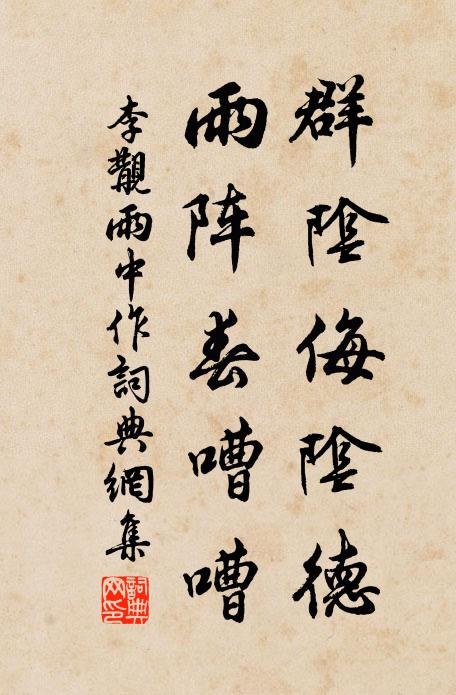 群陰侮陰德
雨阵春嘈嘈
李覯雨中作詞典網集
詞典網印